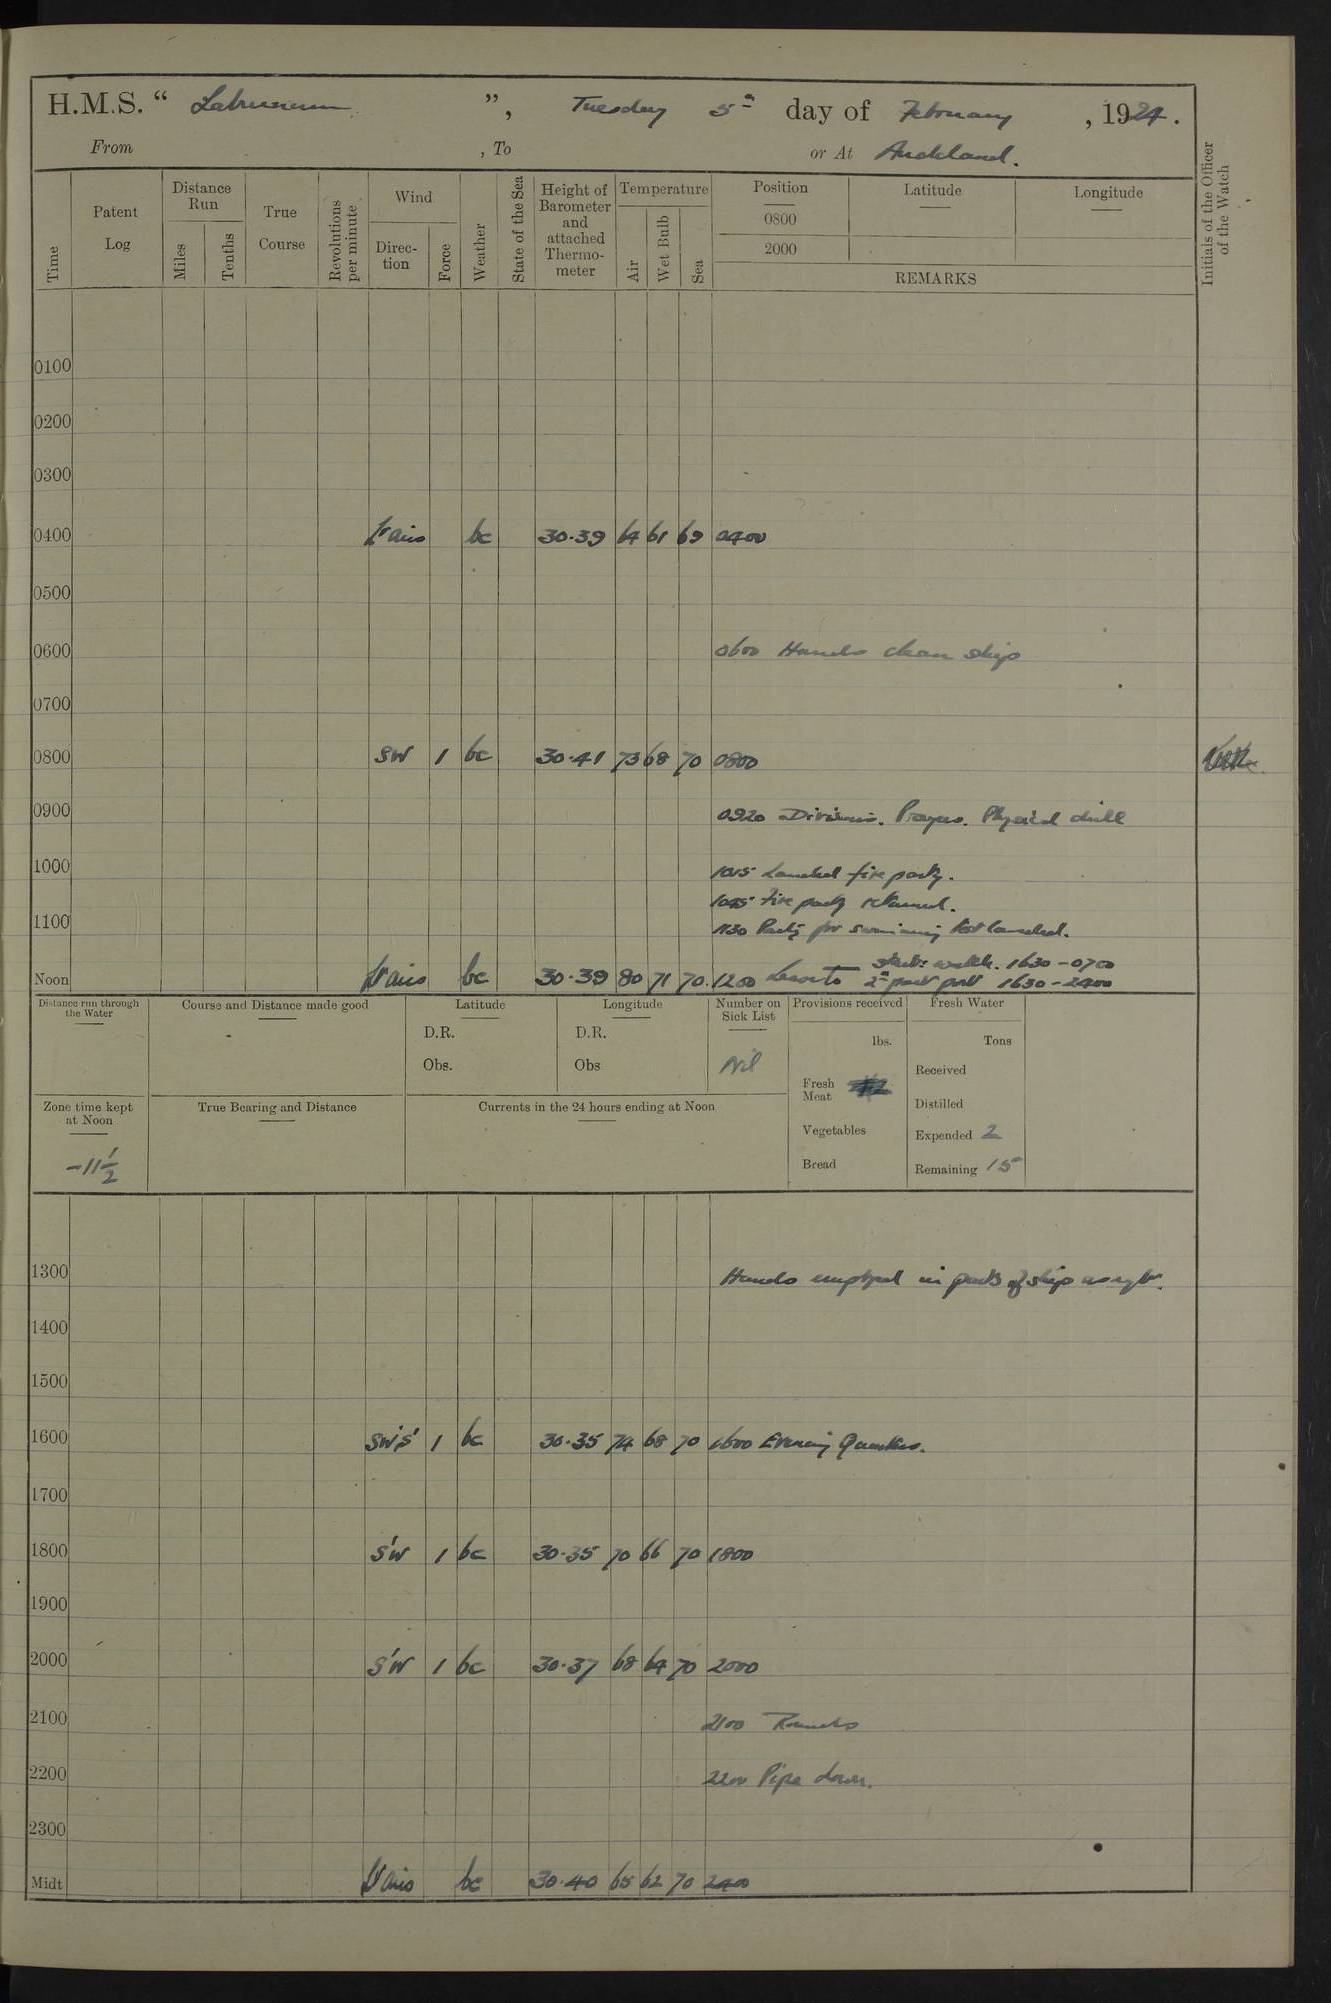 H.M.S. “ Laburnum ”, Tuesday 5th day of February , 1924.
From , To or At Auckland.
Time Patent Log Distance Run Miles Tenths True Course Revolutions per minute Wind Direc-tion Force Weather State of the Sea Height of Barometer and attached Thermo-meter Temperature Air Wet Bulb Sea Position 0800 2000 Latitude Longitude REMARKS Initials of the Officer of the Watch
0100
0200
0300
0400 lt airs bc 30.39 64 61 69 0400
0500
0600 0600 Hands clean ship
0700
0800 SW 1 bc 30.41 73 68 70 0800
0900 0920 Divisions. Prayers. Physical drill
1000 1015 Landed fire party.
1045 Fire party returned.
1100 1130 Party for swimming test landed.
Noon lt airs bc 30.39 80 71 70 1200 Leave to Starbd watch. 1630-0700
2nd part port 1630-2400
Distance run through the Water
Course and Distance made good
Latitude
D.R.
Obs.
Longitude
D.R.
Obs
Number on Sick List
Nil
Provisions received
lbs.
Fresh Meat
Vegetables
Bread
Fresh Water
Tons
Received
Distilled
Expended 2
Remaining 15
Zone time kept at Noon
-11 1/2
True Bearing and Distance
Currents in the 24 hours ending at Noon
1300 Hands employed in parts of ship as reqte.
1400
1500
1600 SW'S' 1 bc 30.35 74 68 70 1600 Evening Quarters.
1700
1800 S'W 1 bc 30.35 70 66 70 1800
1900
2000 S'W 1 bc 30.37 68 64 70 2000
2100 2100 Rounds
2200 2200 Pipe down.
2300
Midt lt airs bc 30.40 65 62 70 2400